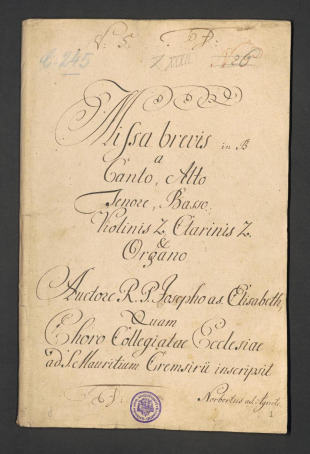 N: 5.
245
N 26
Missa brevis in B
a
Canto, Alto
Tenore, Basso,
Violinis 2 Clarinis 2
&
Organo
Auctore R. P. Josepho a S. Elisabeth,
Quam
Choro Collegiatae Ecclesiae
ad S. Mauritium Cremsirii inscripsit
Norbertus